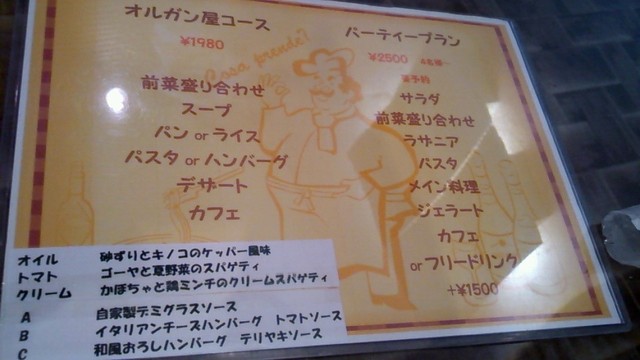 オルガン屋コース
¥1980
前菜盛り合わせ
スープ
パン or ライス
パスタ or ハンバーグ
デザート
カフェ
Cosa prende?
パーティープラン
¥2500
要予約
サラダ
前菜盛り合わせ
ラザニア
パスタ
メイン料理
ジェラート
カフェ
or フリードリンク
+¥1500
オイル 砂ずりとキノコのケッパー風味
トマト ゴーヤと夏野菜のスパゲティ
クリーム かぼちゃと鶏ミンチのクリームスパゲティ
A 自家製デミグラスソース
B イタリアンチーズハンバーグ トマトソース
C 和風おろしハンバーグ テリヤキソース